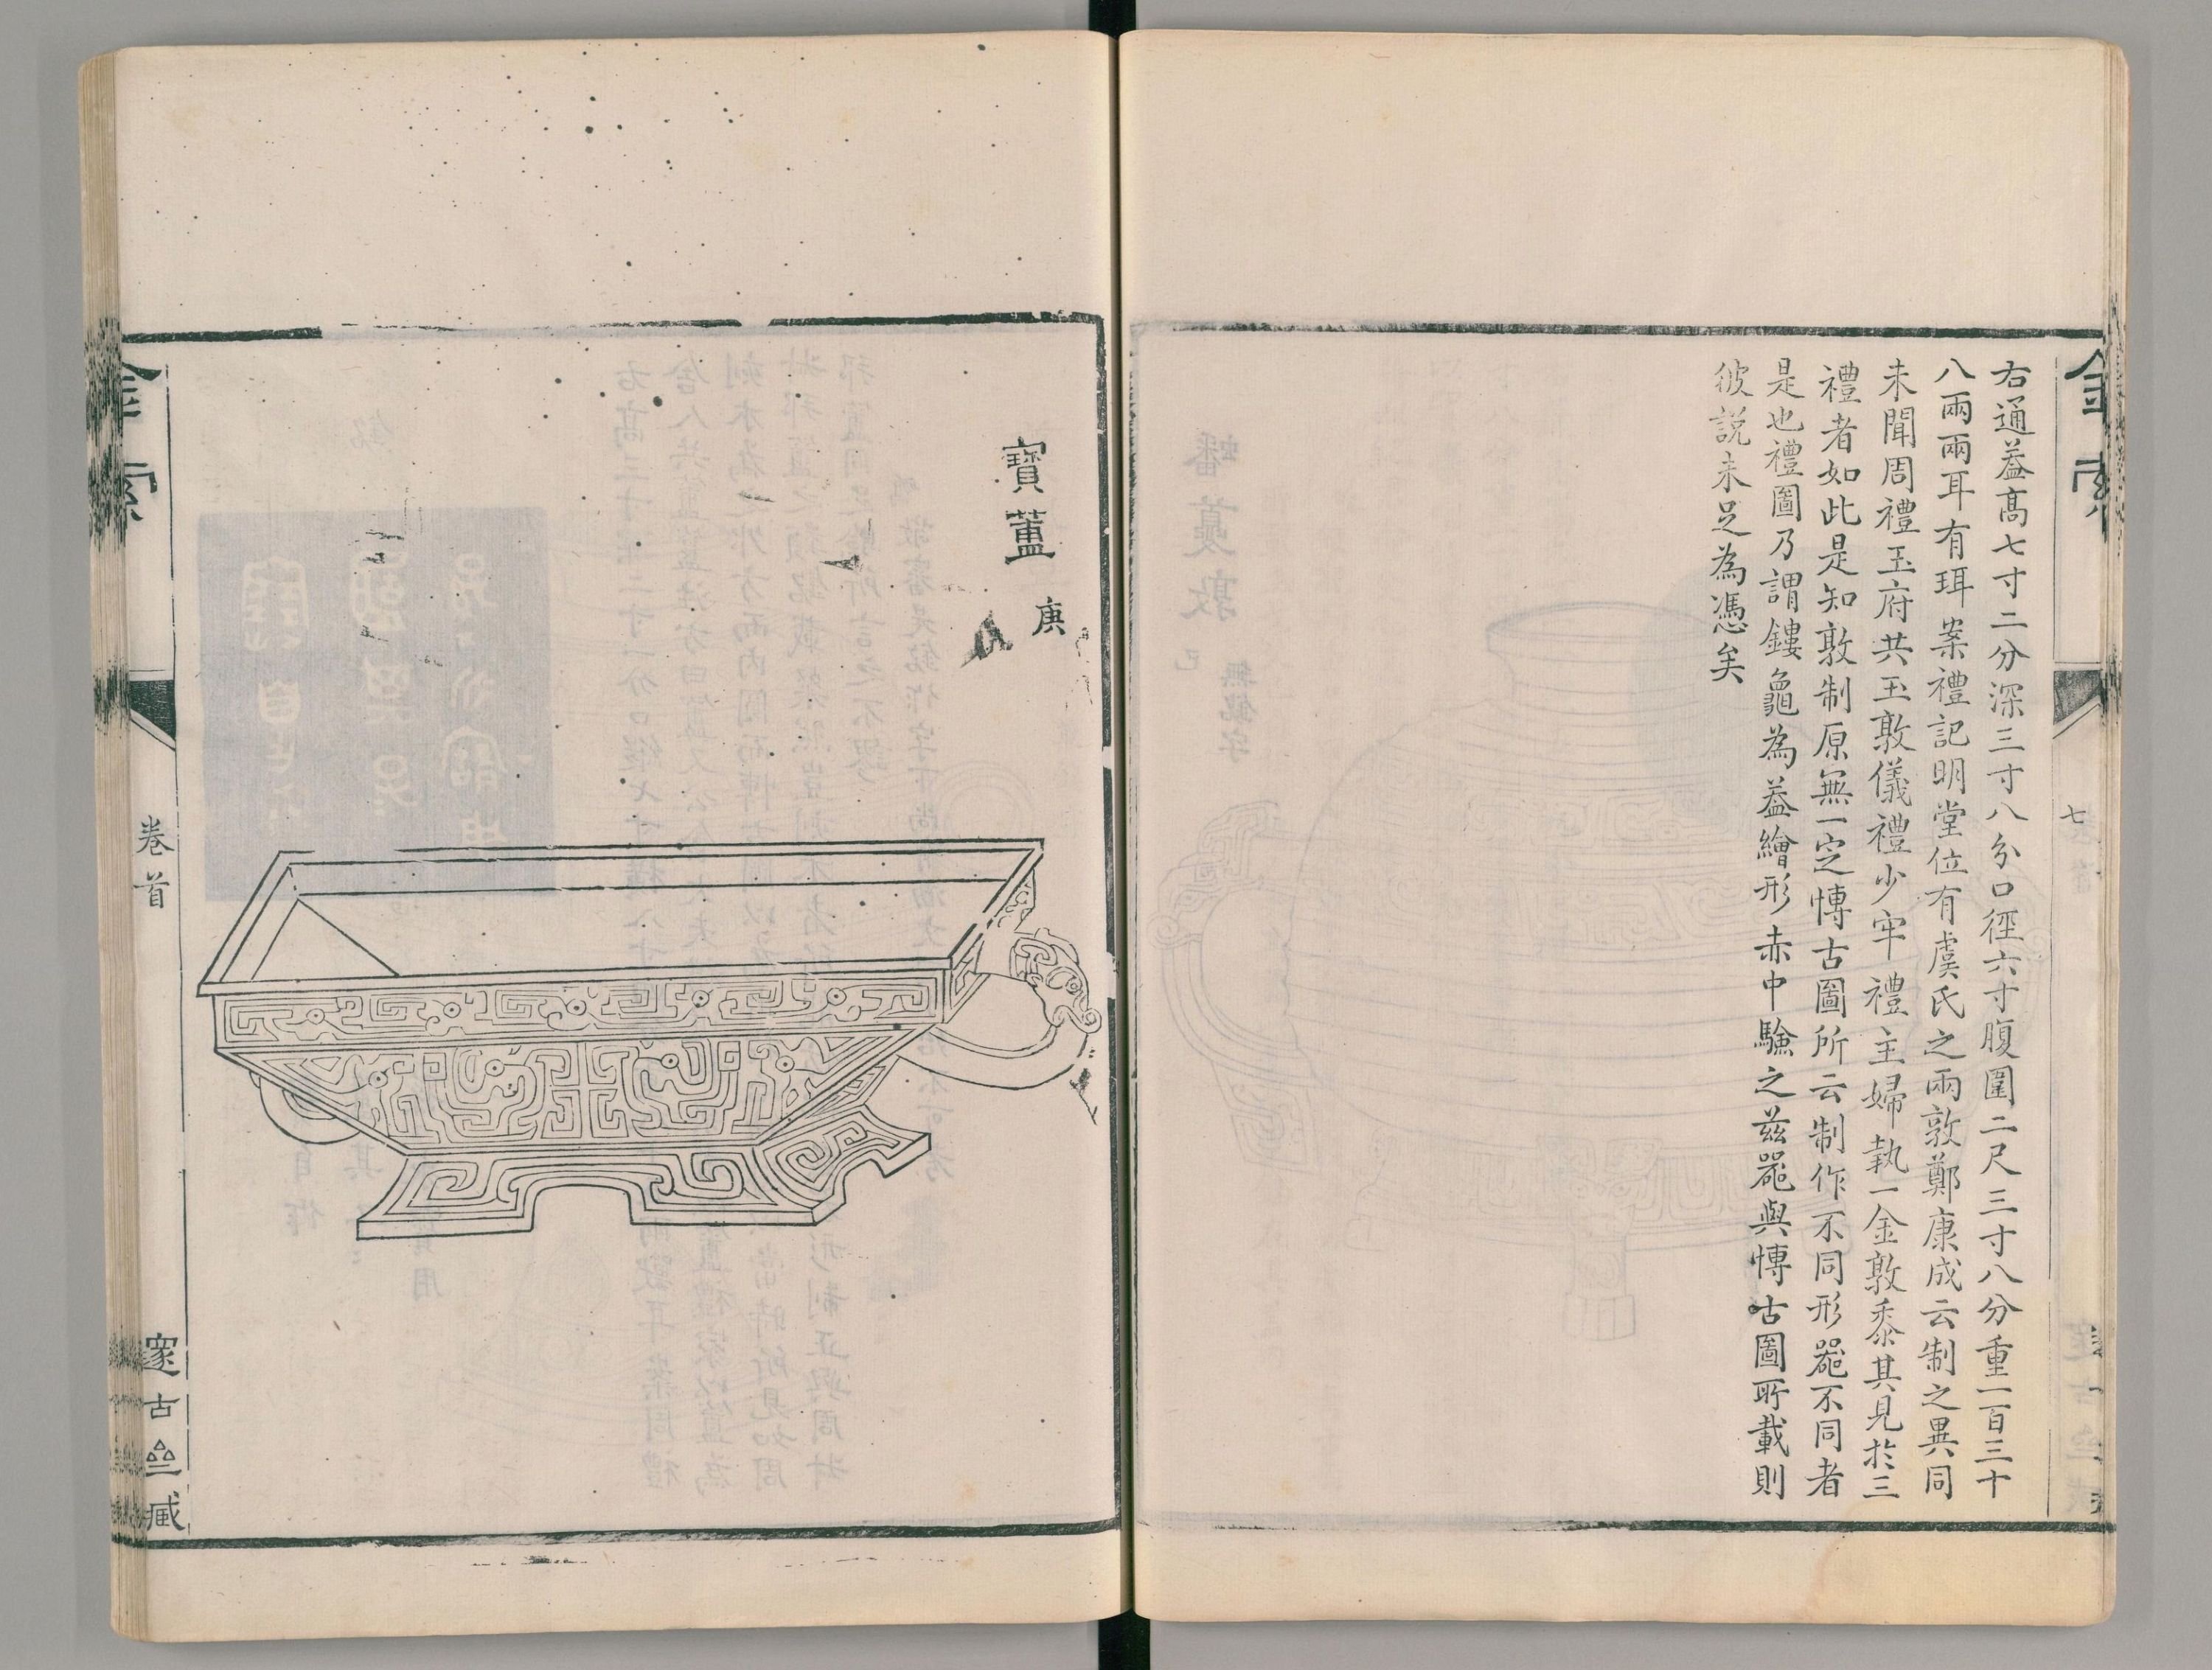 金索
七
右通葢高七寸二分深三寸八分口徑六寸腹圍二尺三寸八分重一百三十
八兩兩耳有珥案禮記明堂位有虞氏之兩敦鄭康成云制之異同
未聞周禮玉府共玉敦儀禮少牢禮主婦執一金敦黍其見於三
禮者如此是知敦制原無一定愽古圖所云制作不同形噐不同者
是也禮圖乃謂鏤龜為葢繪形赤中驗之兹噐與愽古圖所載則
彼説未足為憑矣
寶簠
庚
金索
卷首
邃古
藏